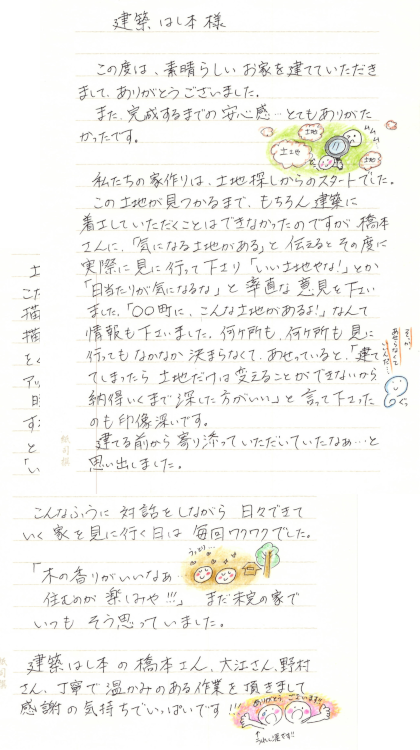 建築 はし本 様
この度は、素晴らしい お家を建てていただき
まして、ありがとうございました。
また、完成するまでの 安心感…とてもありがた
かったです。
土地
土土地
土地
ムムム
私たちの家作りは、土地探しからのスタートでした。
この土地が見つかるまで、もちろん建築に
着工していただくことはできなかったのですが 橋本
さんに、「気になる土地がある」と 伝えるとその度に
実際に見に行って下さり「いい土地やな!」とか
「日当たりが気になるな」と 率直な意見を下さい
ました。「〇〇町に、こんな土地があるよ!」なんて
情報も下さいました。何ケ所も、何ケ所も見に
行ってもなかなか決まらなくて、あせっていると、「建て
てしまったら 土地だけは変えることができないから
納得いくまで探した方がいい」と言って下さった
のも印象深いです。
建てる前から寄り添っていただいていたなぁ…と
思い出しました。
そっか
あせらなくて
いんだ…
土
こた
描
描
をく
アッ
目
すこ
と
「い
こんなふうに 対話をしながら 日々できて
いく 家を見に行く日は 毎回ワクワクでした。
うっとり…
「木の香りがいいなぁ…
住むのが 楽しみや!!!」 まだ未完の家で
いつも そう思っていました。
建築はし本 の 橋本さん、大江さん、野村
さん、丁寧で 温かみのある作業を頂きまして
感謝の気持ちでいっぱいです!!!
ありがとう ございます!!
うれし泣です!!